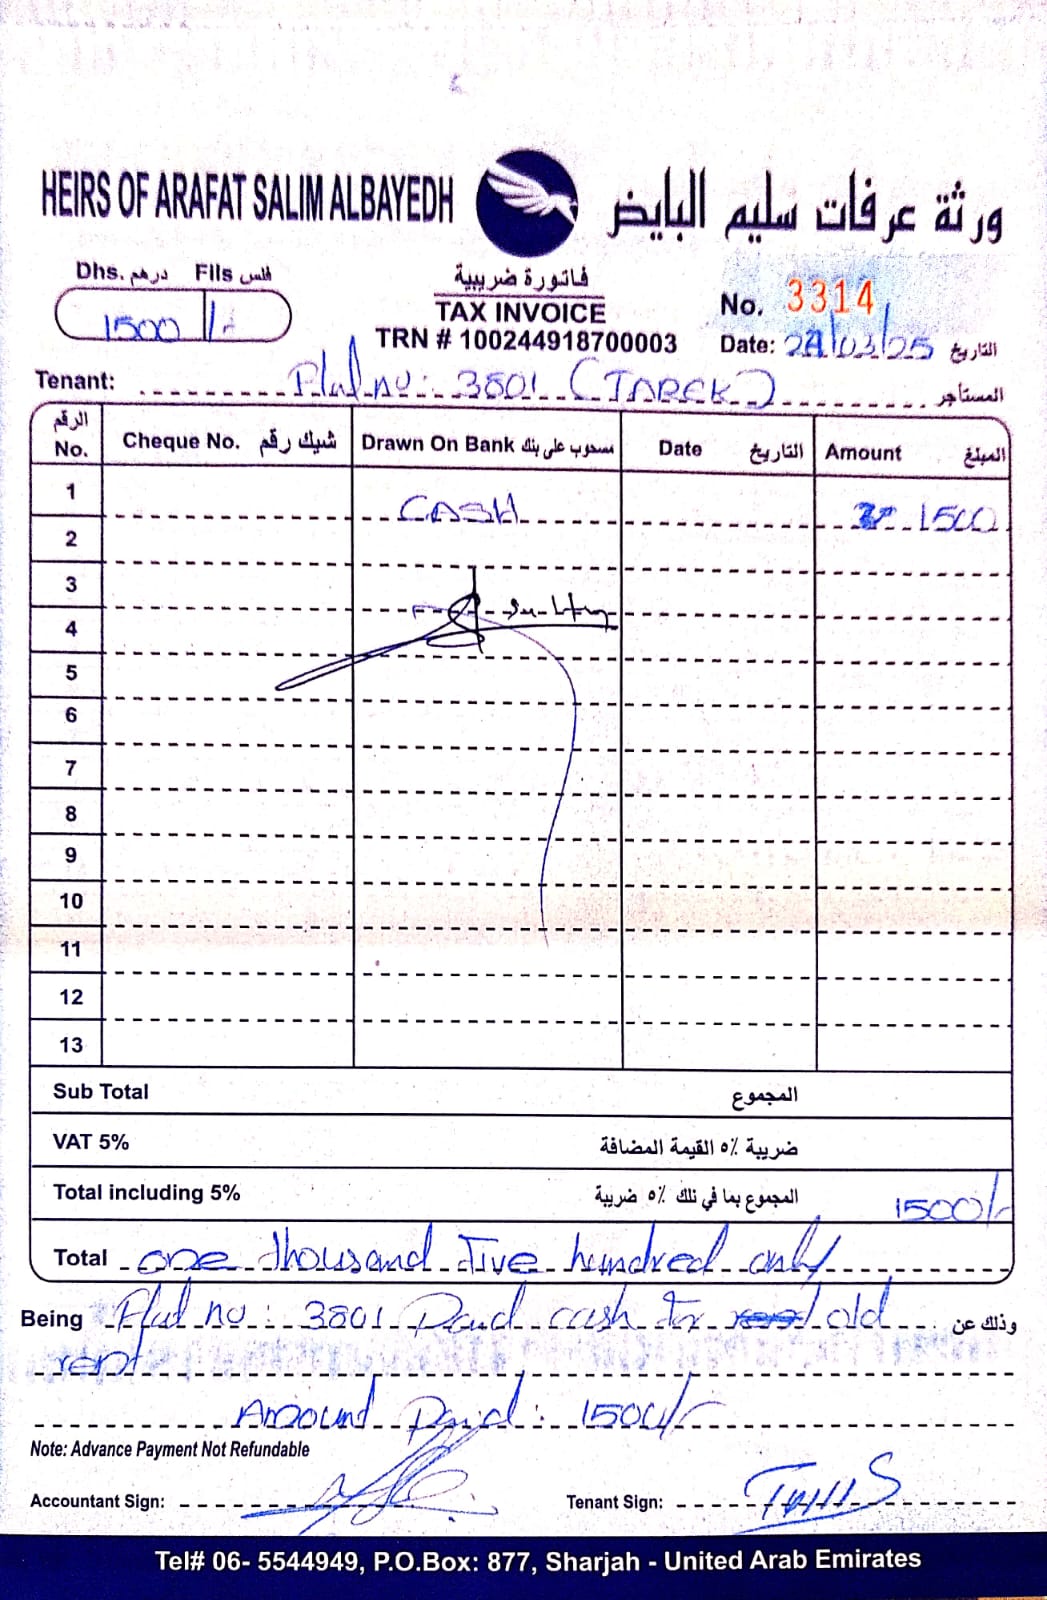 HEIRS OF ARAFAT SALIM ALBAYEDH ورثة عرفات سليم البايض
Dhs. درهم Fils فلس
1500 /-
فاتورة ضريبية
TAX INVOICE
TRN # 100244918700003
No. 3314
Date: /03/25 التاريخ
Tenant: Flat no: 3801 (TAREK) المستأجر
الرقم No. Cheque No. شيك رقم Drawn On Bank مسحوب على بنك Date التاريخ Amount المبلغ
1 CASH 1500
2
3
4
5
6
7
8
9
10
11
12
13
Sub Total المجموع
VAT 5% ضريبة ٥٪ القيمة المضافة
Total including 5% المجموع بما في ذلك ٥٪ ضريبة 1500/-
Total one thousand Five hundred only
Being Flat no: 3801 Paid cash for old وذلك عن
rent
Amound Paid: 1500/-
Note: Advance Payment Not Refundable
Accountant Sign:
Tenant Sign:
Tel# 06- 5544949, P.O.Box: 877, Sharjah - United Arab Emirates